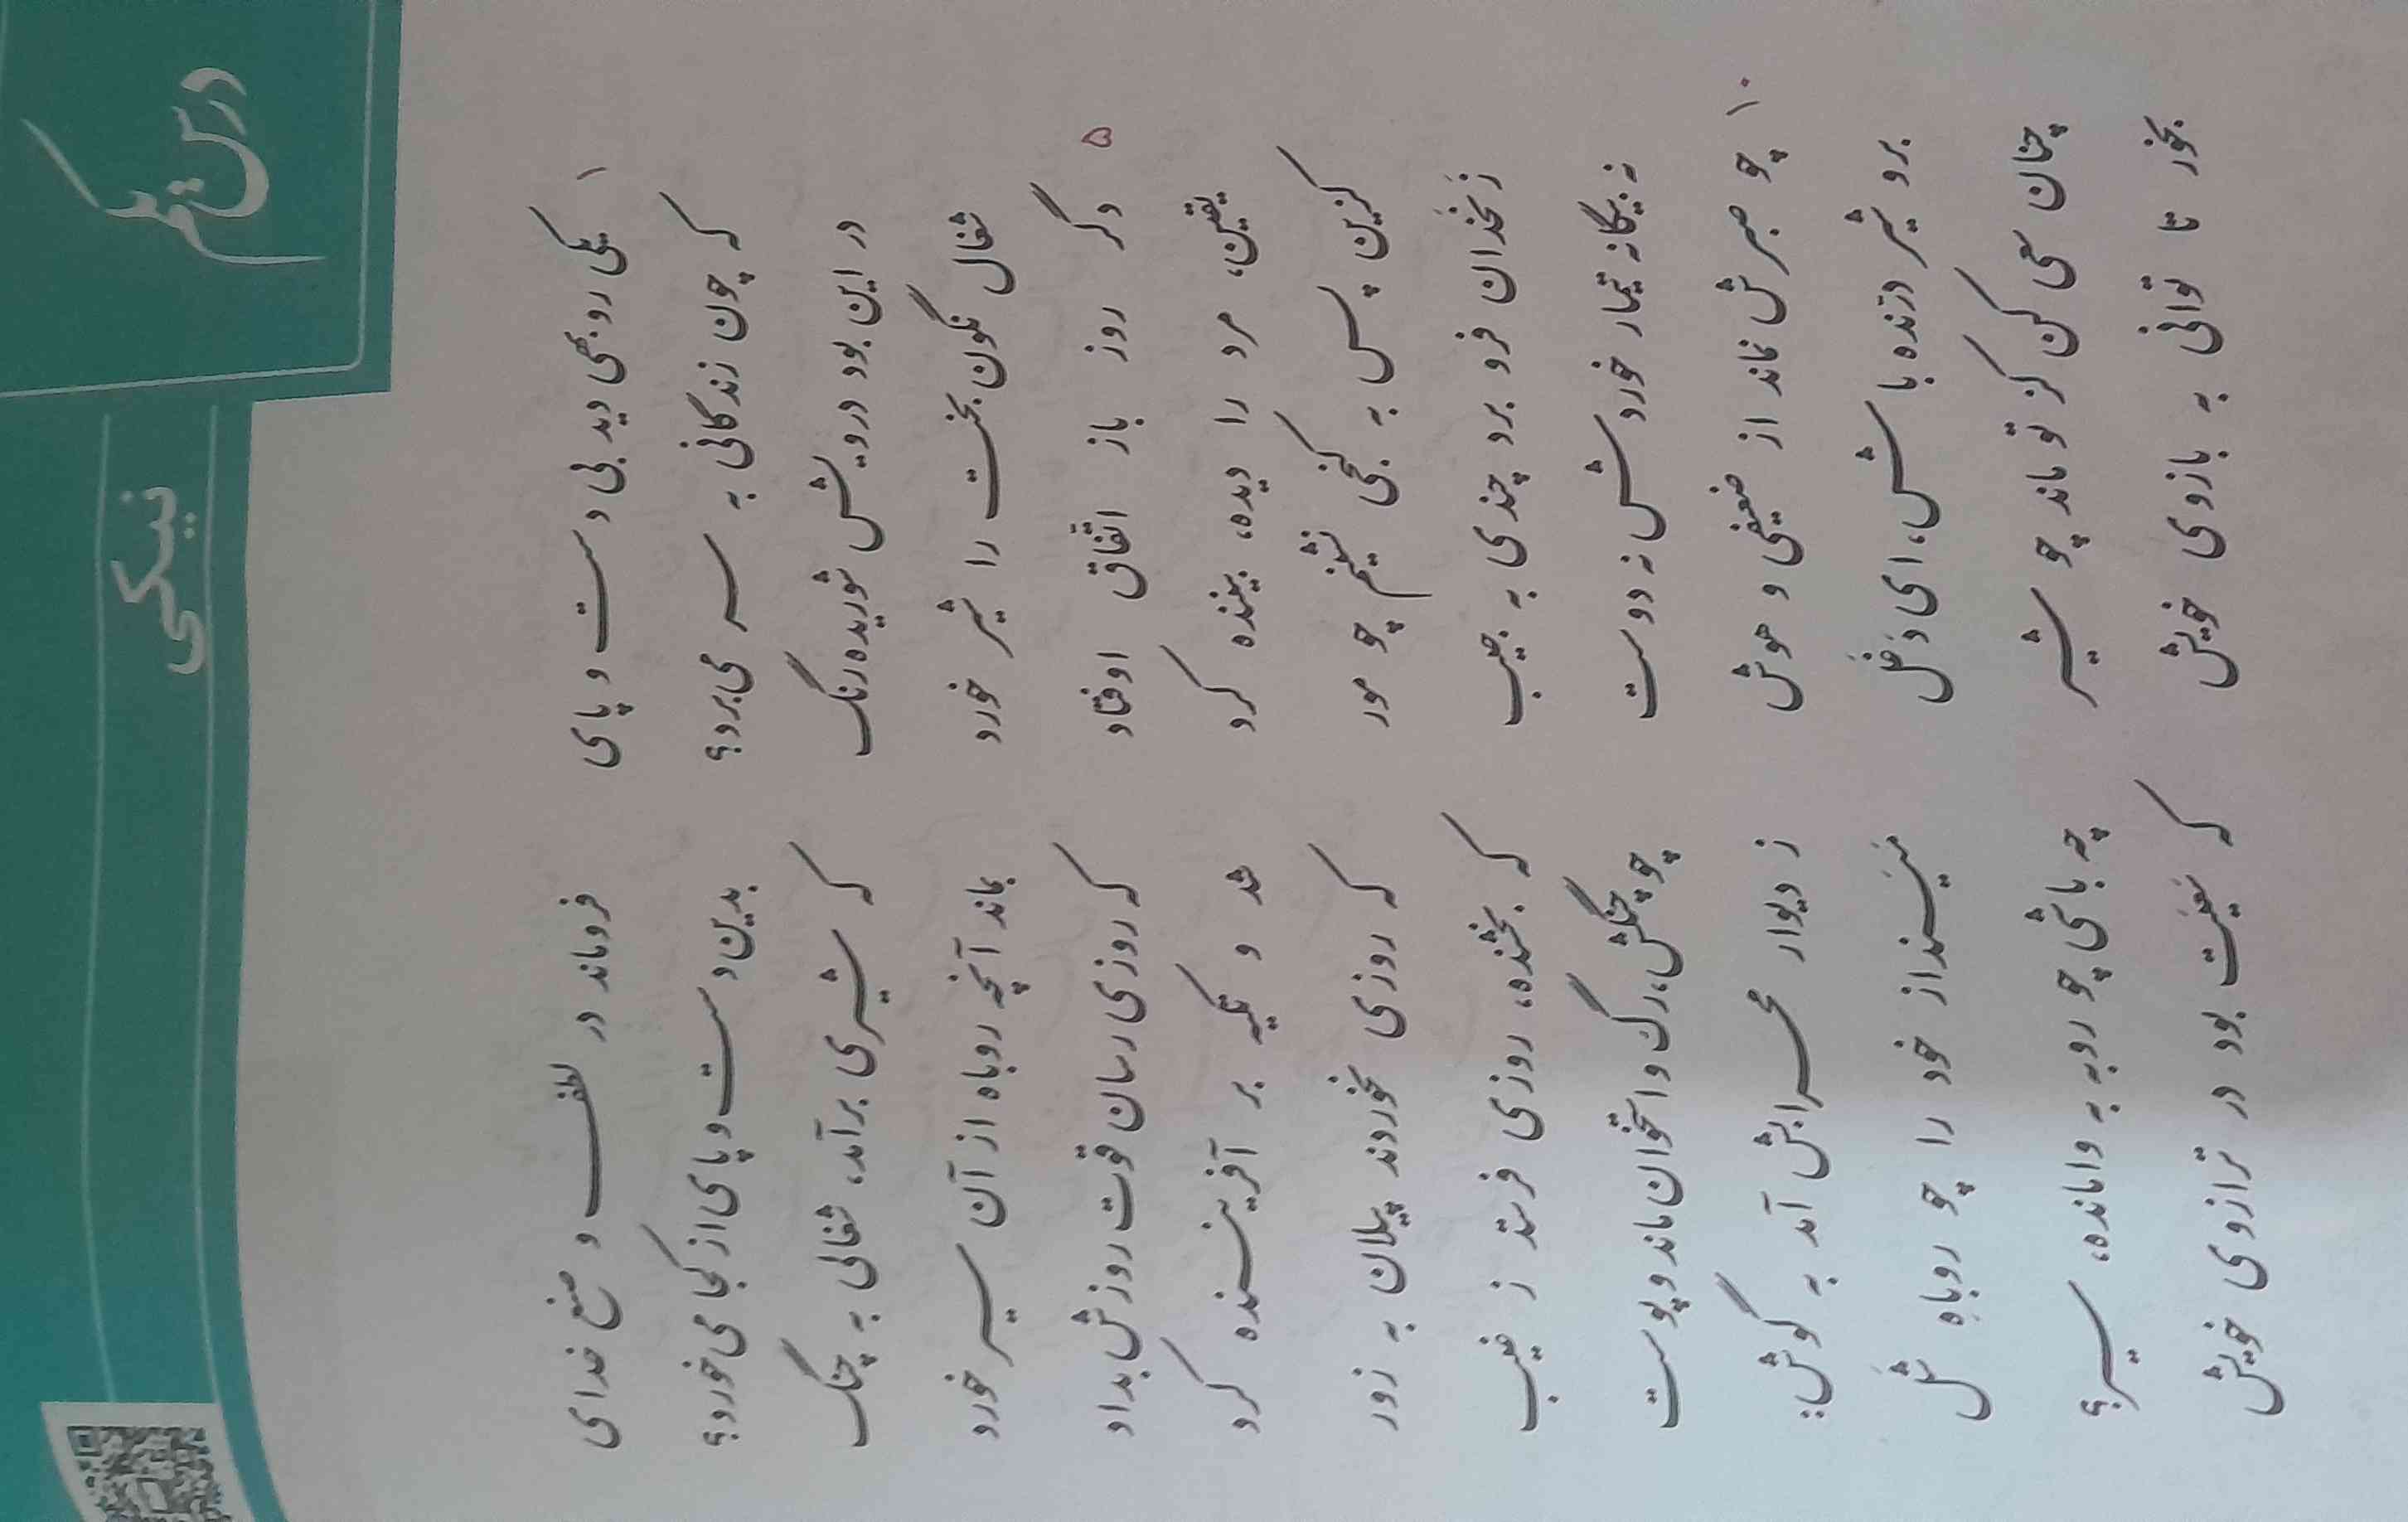 درس یکم
نیکی
۱ یکی روبهی دید بی دست و پای فروماند در لطف و صنع خدای
که چون زندگانی به سر می‌برد؟ بدین دست و پای از کجا می‌خورد؟
در این بود درویش شوریده‌رنگ که شیری برآمد، شغالی به چنگ
شغال نگون‌بخت را شیر خورد بماند آنچه روباه از آن سیر خورد
۵ دگر روز باز اتّفاق اوفتاد که روزی رسان قوت روزش بداد
یقین، مرد را دیده، بیننده کرد شد و تکیه بر آفریننده کرد
کزین پس به کنجی نشینم چو مور که روزی نخوردند پیلان به زور
زَنَخدان فرو برد چندی به جیب که بخشنده، روزی فرستد ز غیب
نه بیگانه تیمار خوردش نه دوست چو چنگش، رگ و استخوان ماند و پوست
۱۰ چو صبرش نماند از ضعیفی و هوش ز دیوار محرابش آمد به گوش:
برو شیر درنده باش، ای دَغَل مَیَنداز خود را چو روباهِ شَل
چنان سعی کن کز تو ماند چو شیر چه باشی چو روبه به وامانده، سیر؟
بخور تا توانی به بازوی خویش که سَعیَت بود در ترازوی خویش